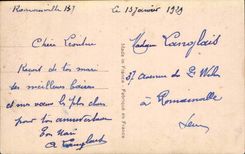 Romainville le 13 Janvier 1939
Chère Léontine
Reçoit de ton mari
les meilleurs baisers
et ma vœux le plus chers
pour ton anniversaire
Ton Mari
A Langlais
Made in France
Fabriqué en France
Madame Langlais
37 Avenue du Dr
à Romainville
Seine